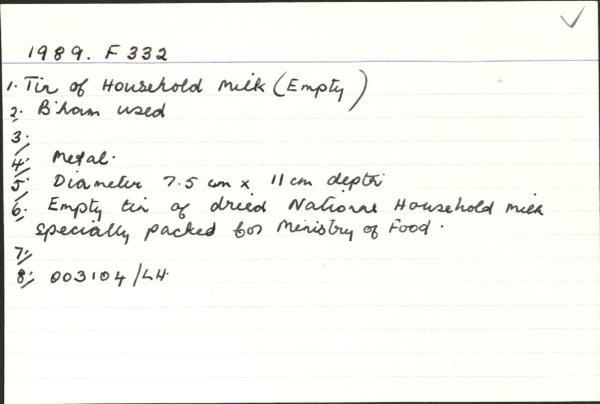 1989. F 332
1. Tin of Household Milk (Empty)
2. B'ham used
3.
4. Metal.
5. Diameter 7.5 cm x 11 cm depth
6. Empty tin of dried National Household milk
specially packed for Ministry of Food.
7.
8. 003104/LH.